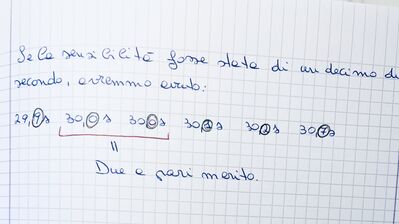 Se la sensibilità fosse stata di un decimo di
secondo, avremmo avuto:
29,9s 30,0s 30,0s 30,2s 30,2s 30,7s
=
Due a pari merito.